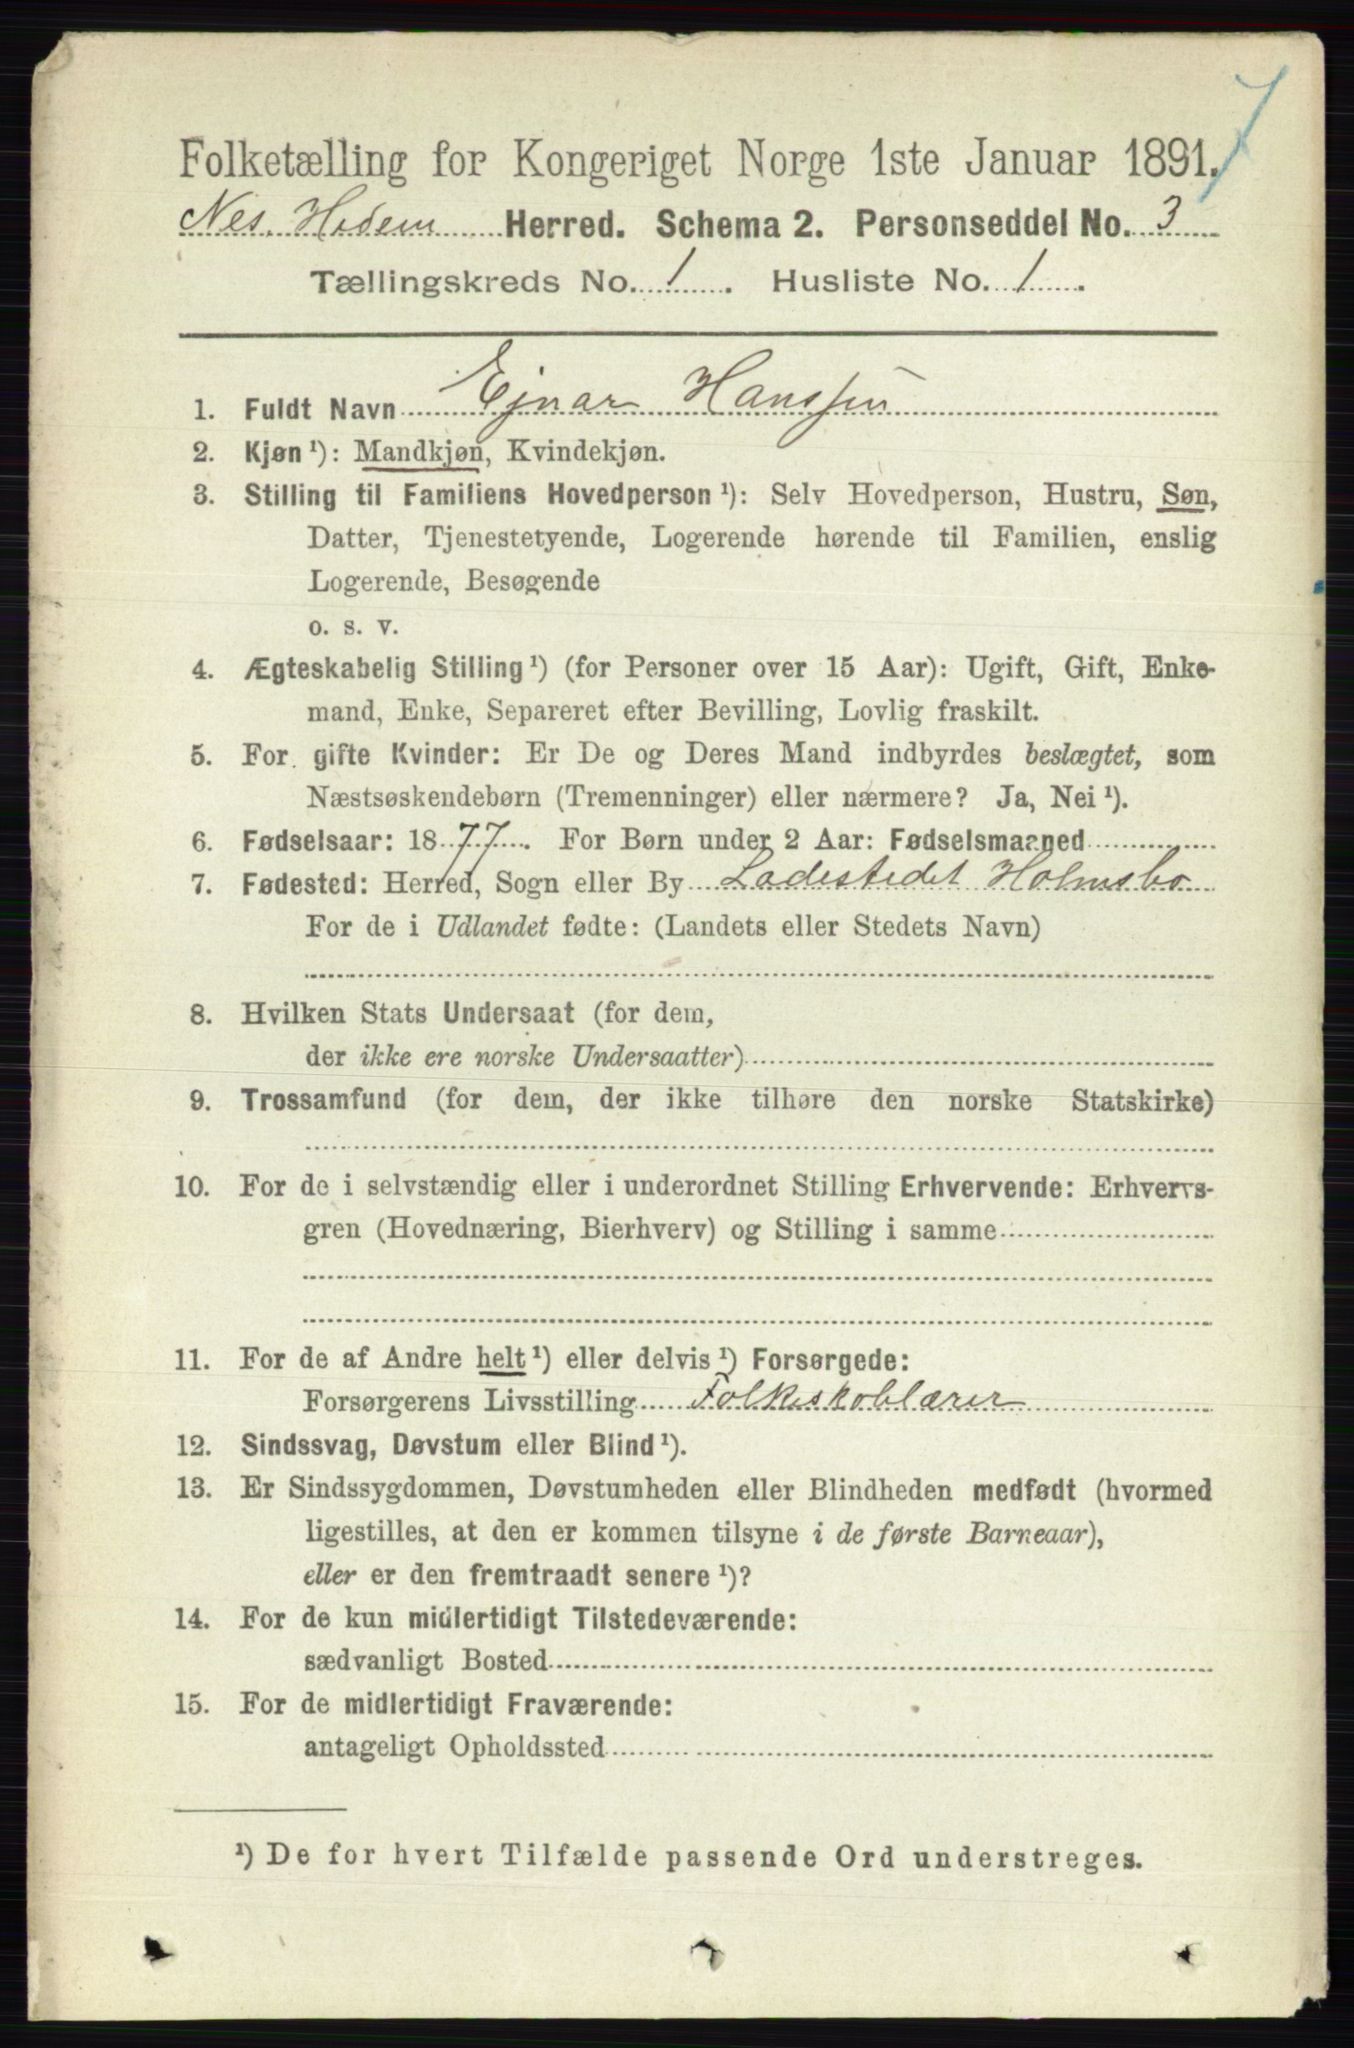 7
Folketælling for Kongeriget Norge 1ste Januar 1891.
Nes. Hedem Herred. Schema 2. Personseddel No. 3
Tællingskreds No. 1. Husliste No. 1.
1. Fuldt Navn Ejnar Hanssen
2. Kjøn ¹): Mandkjøn, Kvindekjøn.
3. Stilling til Familiens Hovedperson ¹): Selv Hovedperson, Hustru, Søn,
Datter, Tjenestetyende, Logerende hørende til Familien, enslig
Logerende, Besøgende
o. s. v.
4. Ægteskabelig Stilling ¹) (for Personer over 15 Aar): Ugift, Gift, Enke-
mand, Enke, Separeret efter Bevilling, Lovlig fraskilt.
5. For gifte Kvinder: Er De og Deres Mand indbyrdes beslægtet, som
Næstsøskendebørn (Tremenninger) eller nærmere? Ja, Nei ¹).
6. Fødselsaar: 1877. For Børn under 2 Aar: Fødselsmaaned
7. Fødested: Herred, Sogn eller By Ladestedet Holmsbo
For de i Udlandet fødte: (Landets eller Stedets Navn)
8. Hvilken Stats Undersaat (for dem,
der ikke ere norske Undersaatter)
9. Trossamfund (for dem, der ikke tilhøre den norske Statskirke)
10. For de i selvstændig eller i underordnet Stilling Erhvervende: Erhvervs-
gren (Hovednæring, Bierhverv) og Stilling i samme
11. For de af Andre helt ¹) eller delvis ¹) Forsørgede:
Forsørgerens Livsstilling Folkeskolelærer
12. Sindssvag, Døvstum eller Blind ¹).
13. Er Sindssygdommen, Døvstumheden eller Blindheden medfødt (hvormed
ligestilles, at den er kommen tilsyne i de første Barneaar),
eller er den fremtraadt senere ¹)?
14. For de kun midlertidigt Tilstedeværende:
sædvanligt Bosted
15. For de midlertidigt Fraværende:
antageligt Opholdssted
¹) De for hvert Tilfælde passende Ord understreges.